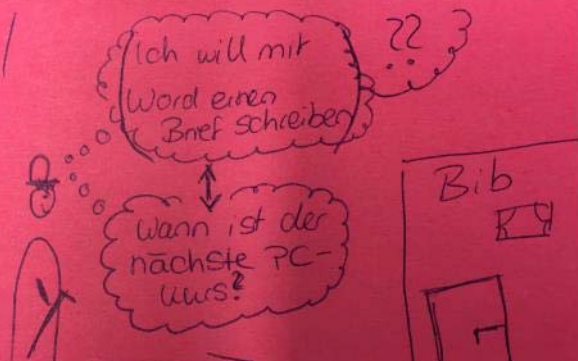 Ich will mit
Word einen
Brief schreiben
??
Wann ist der
nächste PC-
kurs?
Bib